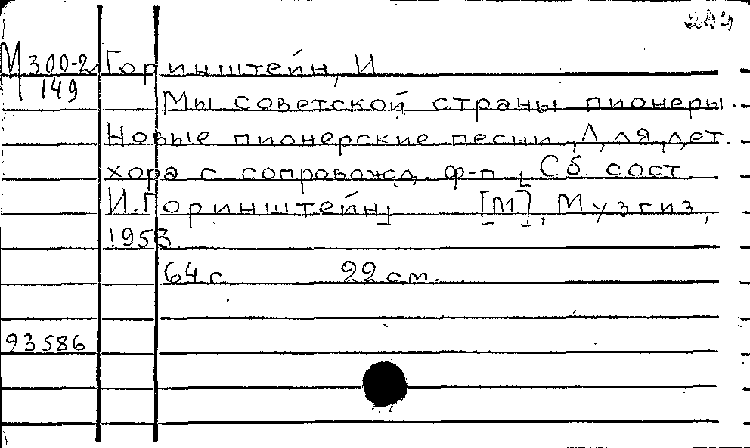 284
М300-2 Горинштейн, И
149
Мы советской страны пионеры.
Новые пионерские песни. Для дет.
хора с сопровожд. ф-п. [Сб. сост.
И. Горинштейн] [М], Музгиз,
1953
64 с. 22 см.
93586